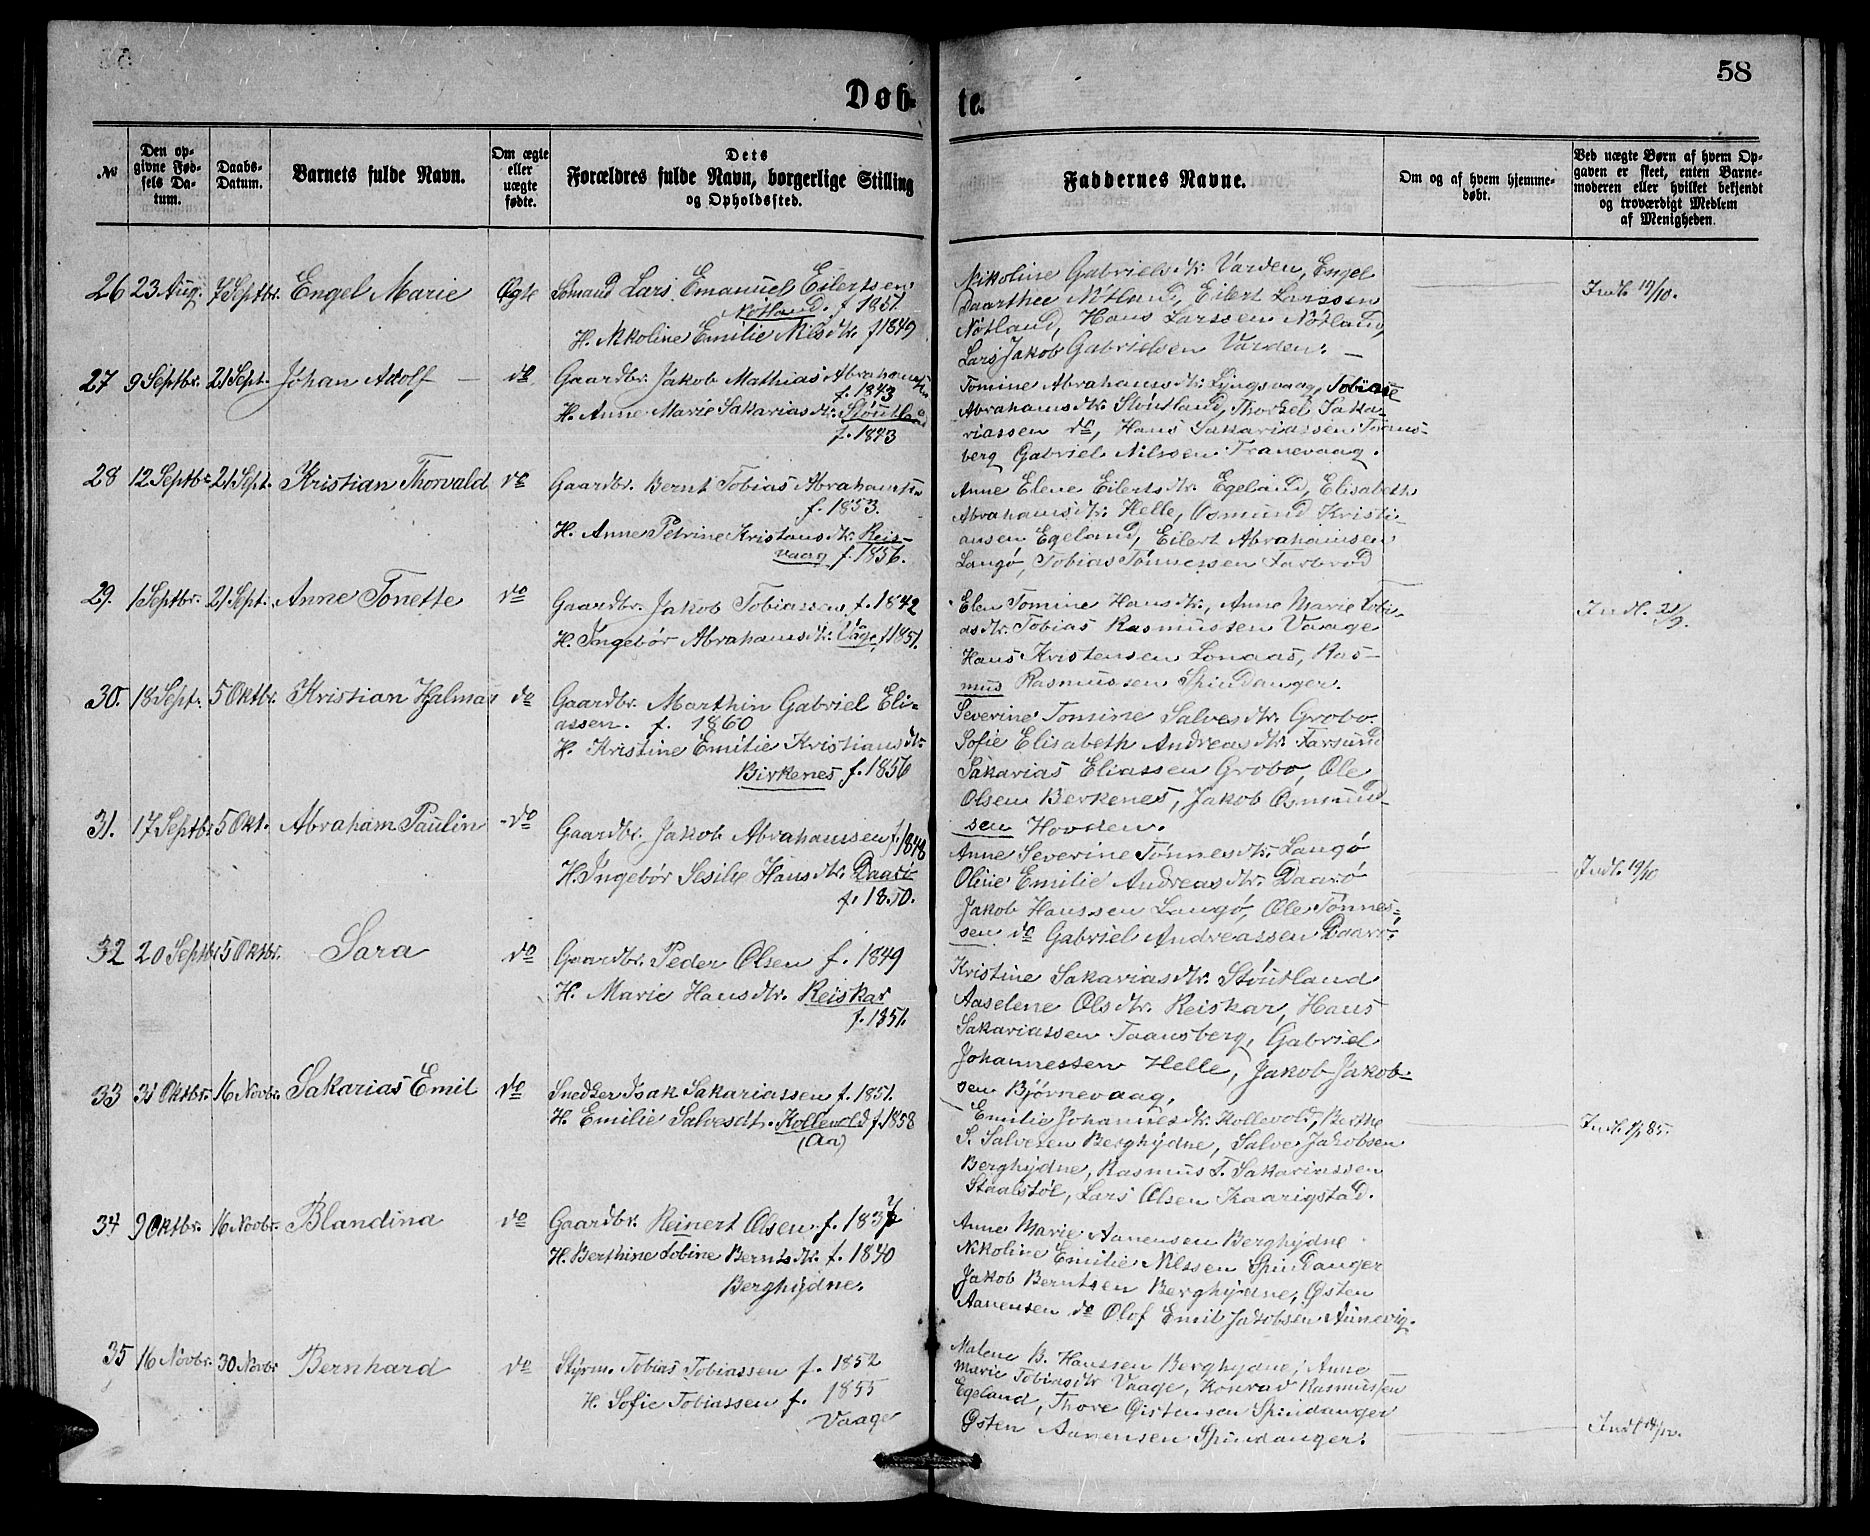 58
Døb-
te.
№
Den op-
givne Fød-
sels Da-
tum.
Daabs-
Datum.
Barnets fulde Navn.
Om ægte
eller
uægte
fødte.
Dets
Forældres fulde Navn, borgerlige Stilling
og Opholdssted.
Faddernes Navne.
Om og af hvem hjemme-
døbt.
Ved uægte Børn af hvem Op-
gaven er skeet, enten Barne-
moderen eller hvilket bekjendt
og troværdigt Medlem
af Menigheden.
26 23 Aug. 7 Septbr. Engel Marie Ægte Sömand Lars Emanuel Eilertsen
Nötland. f. 1851.
H. Nikoline Emilie Nilsdtr. f 1849
Nikoline Gabrielsdtr. Varden, Engel
Daarthee Nötland, Eilert Larssen
Nötland, Hans Larssen Nötland,
Lars Jakob Gabrielsen Varden. —
Indl. 19/10.
27 9 Septbr. 21 Sept. Johan Adolf — do
Gaardbr. Jakob Mathias Abrahamsen
f. 1843
H. Anne Marie Sakariasdtr. Stöutland
f. 1843
Tomine Abrahamsdtr. Lyngsvaag, Tobiase
Abrahamsdtr. Stöutland, Thorkel Saka-
riassen do, Hans Sakariassen Taans-
berg Gabriel Nilssen Tranevaag.
28 12 Septbr. 21 Sept. Kristian Thorvald do
Gaardbr. Bernt Tobias Abrahamsen
f. 1853.
H. Anne Petrine Kristansdtr. Reis-
vaag f. 1856.
Anne Elene Eilertsdtr. Egeland, Elisabeth
Abrahamsdtr. Helle, Osmund Kristi-
ansen Egeland, Eilert Abrahamsen
Langö, Tobias Tönnessen Farbrod
29. 1 Septbr. 21. Sept. Anne Tonette do
Gaardbr. Jakob Tobiassen f. 1842
H. Ingebör Abrahamsdtr. Våge f. 1851.
Elen Tomine Hansdtr., Anne Marie Tobi-
asdtr. Tobias Rasmussen Vaage
Hans Kristensen Lonaas, Ras-
mus Rasmussen Spindanger.
Indl. 21/9.
30. 18 Sept. 5 Oktbr. Kristian Hjalmar do
Gaardbr. Marthin Gabriel Eli-
assen. f. 1860
H. Kristine Emilie Kristiansdtr.
Birkenes f. 1856
Severine Tomine Salvesdtr. Grobo.
Sofie Elisabeth Andreasdtr. Farsund
Sakarias Eliassen Grobo, Ole
Olsen Berkenes, Jakob Osmund-
sen Hovden.
31. 17 Septbr. 5 Okt. Abraham Paulin - do
Gaardbr. Jakob Abrahamsen f. 1848
H. Ingebör Sesilie Hansdtr. Daarö
f. 1850.
Anne Severine Tönnesdtr. Langö
Oline Emilie Andreasdtr. Daarö
Jakob Hanssen Langö, Ole Tönnes-
sen do Gabriel Andreassen Daarö.
Indl. 19/10
32 20 Septbr 5 Oktbr. Sara do
Gaardbr. Peder Olsen f. 1849
H. Marie Hansdtr. Reiskar
f. 1851.
Kristine Sakariasdtr. Stöutland
Aaselene Olsdtr. Reiskar, Hans
Sakariassen Taansberg, Gabriel
Johannessen Helle, Jakob Jakob-
sen Björnevaag,
33 31 Oktbr. 16 Novbr. Sakarias Emil do
Snedker Isak Sakariassen f. 1851.
H. Emilie Salvesdt. Kollevold f. 1858
(Aa)
Emilie Johannesdtr. Kollevold, Berthe
S. Salvesen Berghydne, Salve Jakobsen
Berghydne, Rasmus T. Sakariassen
Staalstöl, Lars Olsen Kaarigstad.
Indl. 1/1 85.
34 9 Oktbr. 16 Novbr. Blandina do
Gaardbr. Reinert Olsen f. 1837
H. Berthine Tobine Berntsdtr. f. 1840
Berghydne.
Anne Marie Aanensen Berghydne
Nikoline Emilie Nilssen Spindanger
Jakob Berntsen Berghydne, Østen
Aanensen do Olof Emil Jakobsen Aunevig.
35 16 Novbr. 30 Novbr Bernhard do
Styrm. Tobias Tobiassen f. 1852
H. Sofie Tobiassen f. 1855
Vaage
Malene B. Hanssen Berghydne, Anne
Marie Tobiasdtr Vaage, Konrad Rasmussen
Egeland, Thore Øistensen Spindanger
Østen Aanensen Spindanger.
Indl. 14/12.